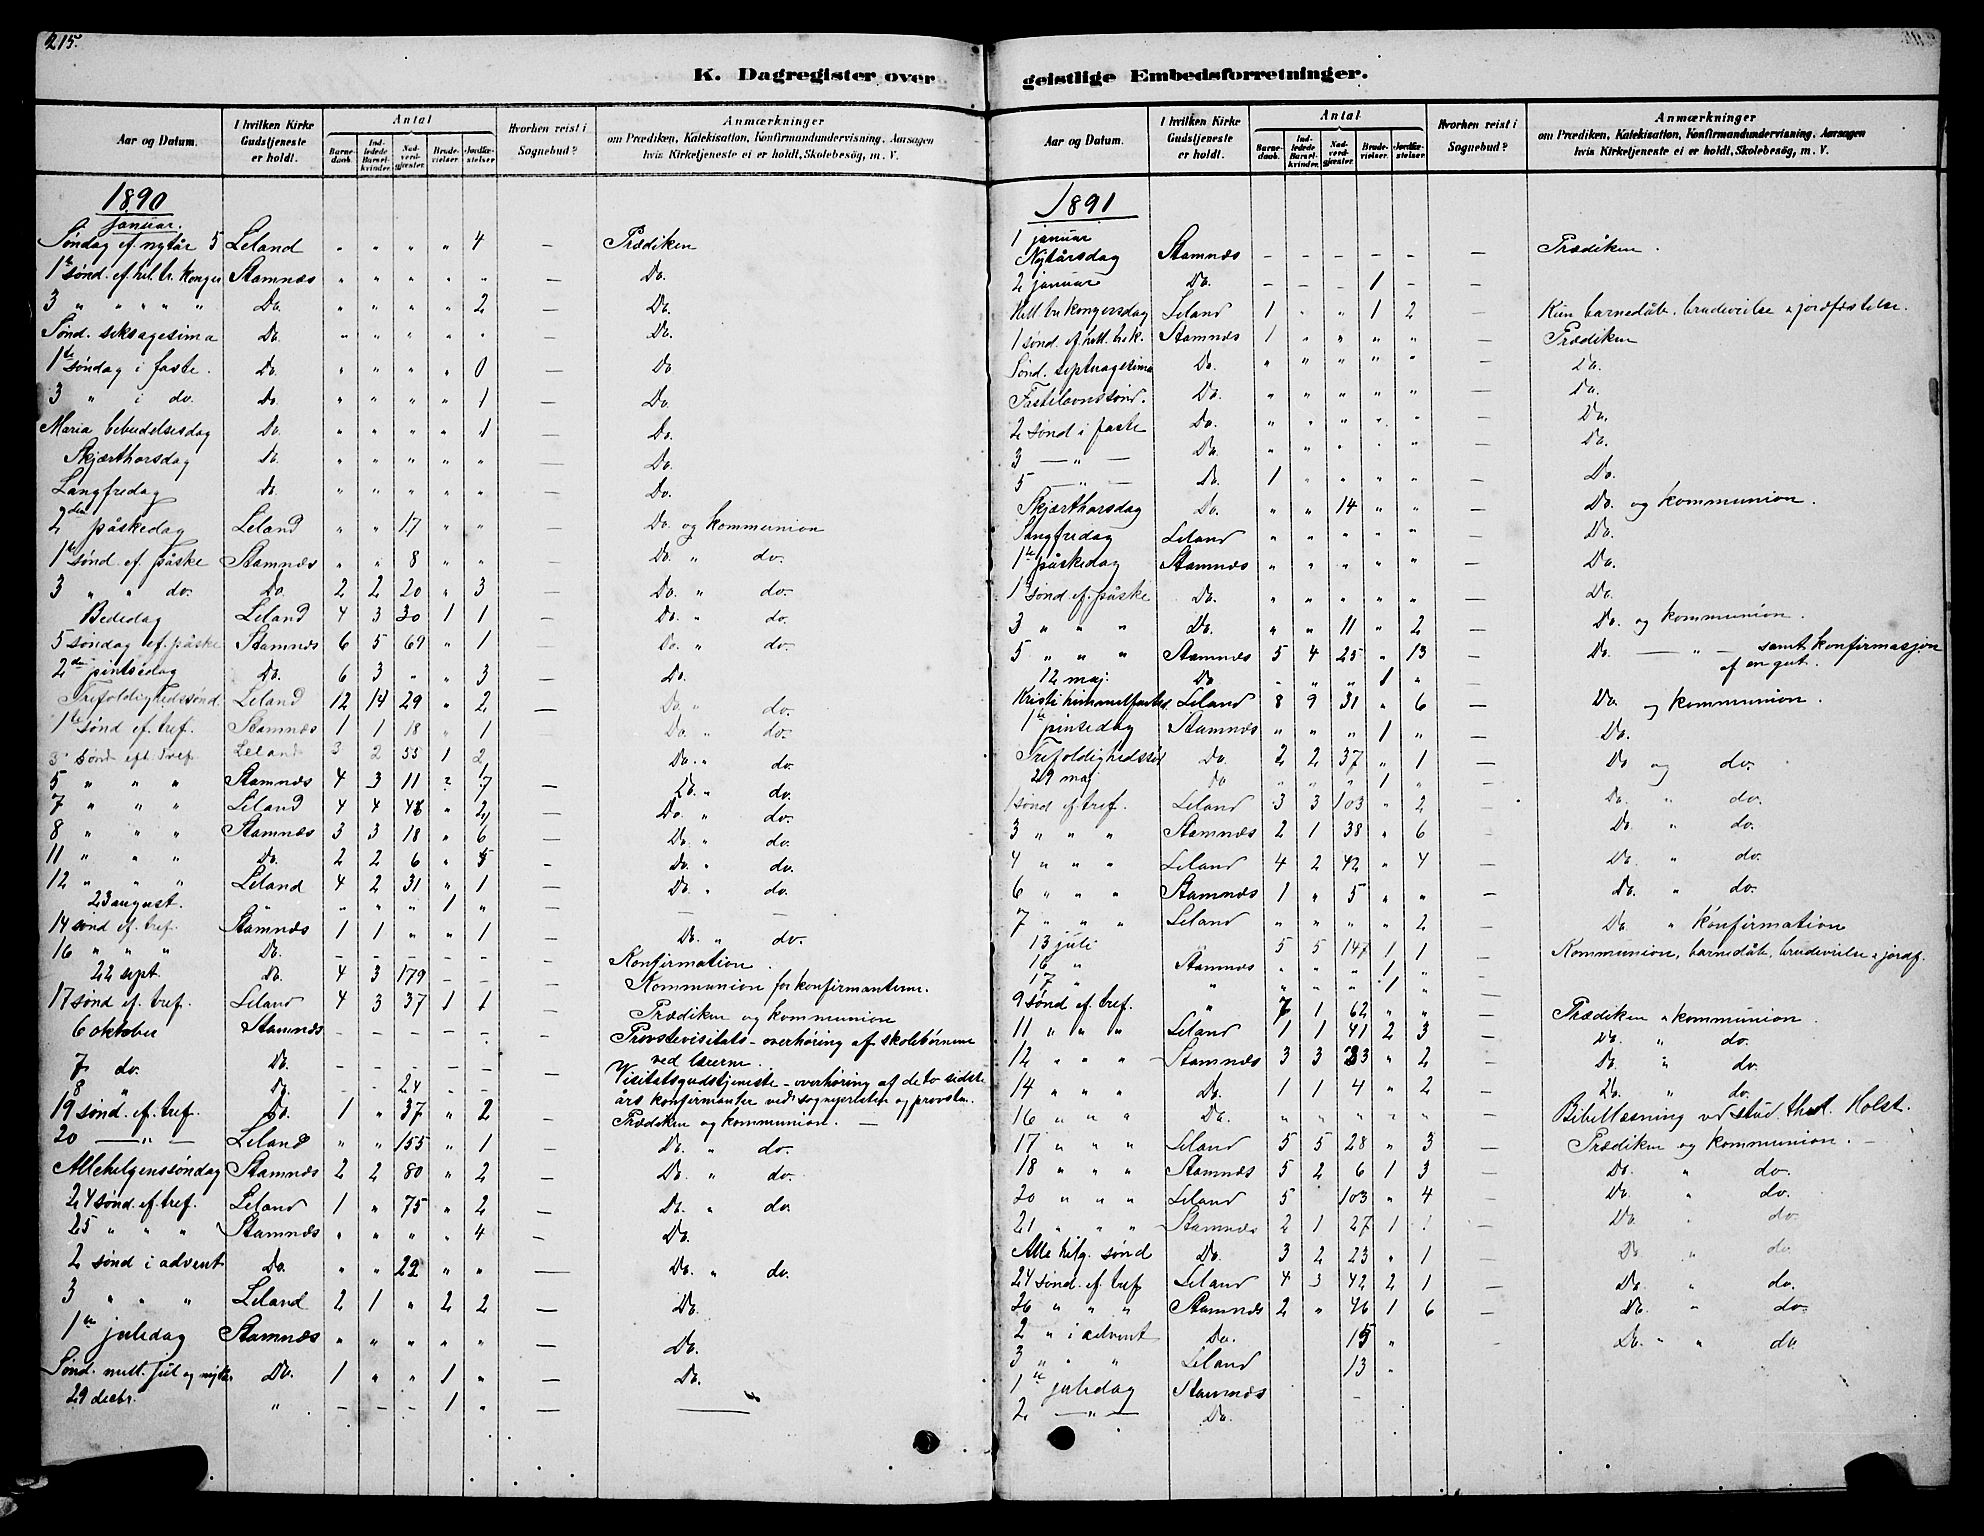 215.
K. Dagregister over
Aar og Datum. | I hvilken Kirke Gudstjeneste er holdt. | Antal | Barnedaab. | Indledede Barselkvinder. | Nadverdgjæster. | Brudevielser. | Jordfæstelser. | Hvorhen reist i Sognebud? | Anmærkninger om Prædiken, Katekisation, Konfirmandundervisning, Aarsagen hvis Kirketjeneste ei er holdt, Skolebesög, m. V.
1890
Januar.
Søndag ef. nytår 5 Leland " " " " 4 — Prædiken
1te sønd. ef. hel. tr. konger Stamnæs " " " " " — Do.
3 " " " " " Do. " " " " 2 — Do.
Sønd. seksagesima Do. " " " " " — Do.
1te søndag i faste. Do. " " " " 0 — Do.
3 " i do. Do. " " " " 1 — Do.
Maria bebudelsesdag Do. " " " " 1 — Do.
Skjærthorsdag Do. " " " " " — Do.
Langfredag Do. " " " " " — Do.
2den påskedag Leland " " 17 " " — Do. og kommunion
1te sønd. ef. påske Stamnæs " " 8 " " — Do. " do.
3 " " do. Do. 2 2 20 " 3 — Do. " do.
Bededag Leland 4 3 30 1 1 — Do. " do.
5 søndag ef. påske Stamnæs 6 5 69 " 1 — Do. " do.
2den pintsedag Do. 6 3 " " 3 — Do.
Trefoldighedssønd. Leland 12 14 29 " 2 — Do. " do.
1te sønd ef. tref. Stamnæs 1 1 18 " 1 Do. " do.
3 sønd eft. Tref. Leland 3 2 55 1 2 Do. " do.
5 " " " Stamnæs 4 3 11 2 7 — Do. " do.
7 " " " Leland 4 4 48 " 2 — Do. " do.
8 " " " Stamnæs 3 3 18 " 6 — Do. " do.
11 " " " Do. 2 2 6 " 5 — Do. " do.
12 " " " Leland 4 2 31 " 1 — Do. " do.
23 august. " " " 1 " — — —
14 sønd ef. tref. Stamnæs 1 1 " " 1 — Do. " do.
16 " " " Do. — — — — — — Konfirmation.
22 sept. Do. 4 3 179 — — — Kommunion for konfirmanterne.
17 sønd ef. tref. Leland 4 3 37 1 1 — Prædiken og kommunion
6 oktober Stamnæs — — — — — — Provstevisitats – overhøring af skolebørnene
ved lærerne.
7 do. Do. — — — — — — Visitatsgudstjeneste – overhøring af de to sidste
8 " Do. — — 24 — — — års konfirmanter ved sognepresten og provsten.
19 sønd. ef. tref. Do. 1 " 37 " 2 — Prædiken og kommunion. —
20 — " — Leland " " 155 " 1 — Do. " do.
Allehelgenssøndag Stamnæs 2 2 80 " 2 — Do. " do.
24 sønd ef. tref. Leland 1 " 75 " 2 — Do. " do.
25 " " " Stamnæs " " " " 4 — Do.
2 sønd i advent Do. " " 29 " " — Do. " do.
3 " " " Leland 2 1 " 2 2 — Do.
1te juledag Stamnæs " " " " " — Do.
Sønd. mell. jul og nytår Do. 1 " " 1 " — Do.
29 decbr. " — — — 1 " — —
geistlige Embedsforretninger.
Aar og Datum. | I hvilken Kirke Gudstjeneste er holdt. | Antal | Barnedaab. | Indledede Barselkvinder. | Nadverdgjæster. | Brudevielser. | Jordfæstelser. | Hvorhen reist i Sognebud? | Anmærkninger om Prædiken, Katekisation, Konfirmandundervisning, Aarsagen hvis Kirketjeneste ei er holdt, Skolebesög, m. V.
1891
1 januar
Nytårsdag Stamnæs — — — — — — Prædiken.
2 januar Do. — — — 1 — —
Hell. tre kongersdag Leland 1 " " 1 2 — Kun barnedåb, brudevielse & jordfæstelse.
1 sønd. ef. hell. tre k. Stamnæs 1 " " " " — Prædiken
Sønd. septuagesima Do. " " " " " — Do.
Fastelavnssønd. Do. " " " " " — Do.
2 sønd i faste Do. " " " " " — Do.
3 — " — Do. " " " " " — Do.
5 — " — Do. 1 " " " " — Do.
Skjærthorsdag Do. " " 14 " " — Do. og kommunion.
Langfredag Leland " " " " " — Do.
1te påskedag Stamnæs " " " " " — Do.
1 sønd ef. påske Do. " " " " " — Do.
3 " " " Do. " " 11 " 2 — Do. og kommunion.
5 " " " Stamnæs 5 4 25 " 13 — Do. — " — samt konfirmasjon
af en gut.
12 maj. Do. " " " 1 " —
Kristi himmelfartsd. Leland 8 9 31 " 6 — Do. og kommunion.
1te pinsedag Stamnæs " " " 1 " — Do.
Trefoldighedssøn Do. 2 2 37 " 1 — Do. og do.
29 maj Do " " " 1 " —
1 sønd ef. tref. Leland 3 3 103 " 2 — Do. " do.
3 " " " Stamnæs 2 1 38 " 6 — Do. " do.
4 " " " Leland 4 2 42 " 4 — Do. " do.
6 " " " Stamnæs 1 " 5 " " — Do. " do.
7 " " " Leland " " " " 2 — Do. " Konfirmation
13 juli " 5 5 147 1 1 — Kommunion, barnedåb, brudevielse & jordf.
16 " Stamnæs " " " 1 " —
17 " " " " " 1 " —
9 sønd ef. tref. " 7 1 62 " " — Prædiken " kommunion.
11 " " " Leland 1 1 41 2 3 — Do. " do.
12 " " " Stamnæs 3 3 23 " 2 — Do. " do.
14 " " " Do. 1 1 4 " 2 — Do. " do.
16 " " " Do. " " " " " — Bibellæsning ved stud. theol. Holst.
17 " " " Leland 5 5 28 " 3 — Prædiken og kommunion. —
18 " " " Stamnæs 5 2 6 1 3 — Do. " do.
20 " " " Leland 5 103 " 4 — Do. " do.
21 " " " Stamnæs 2 1 27 1 1 — Do. " do.
Alle helg. sønd Do. 3 2 23 " 1 — Do. " do.
24 sønd. ef. tref Leland 4 3 42 2 1 — Do. " do.
26 " " " Stamnæs 2 " 46 1 6 — Do. " do.
2 " i advent Do. 15 " — Do. " do.
3 " " " Leland 13 "
1te juledag Stamnæs —
2 — " — Do.